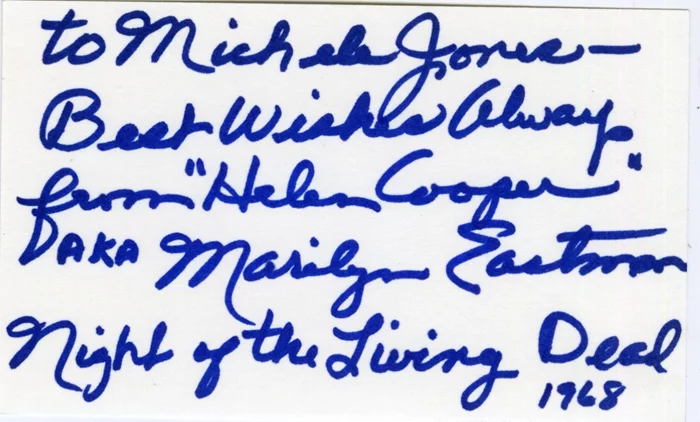 to Michele Jones—
Best Wishes Always
from "Helen Cooper"
AKA Marilyn Eastman
Night of the Living Dead
1968